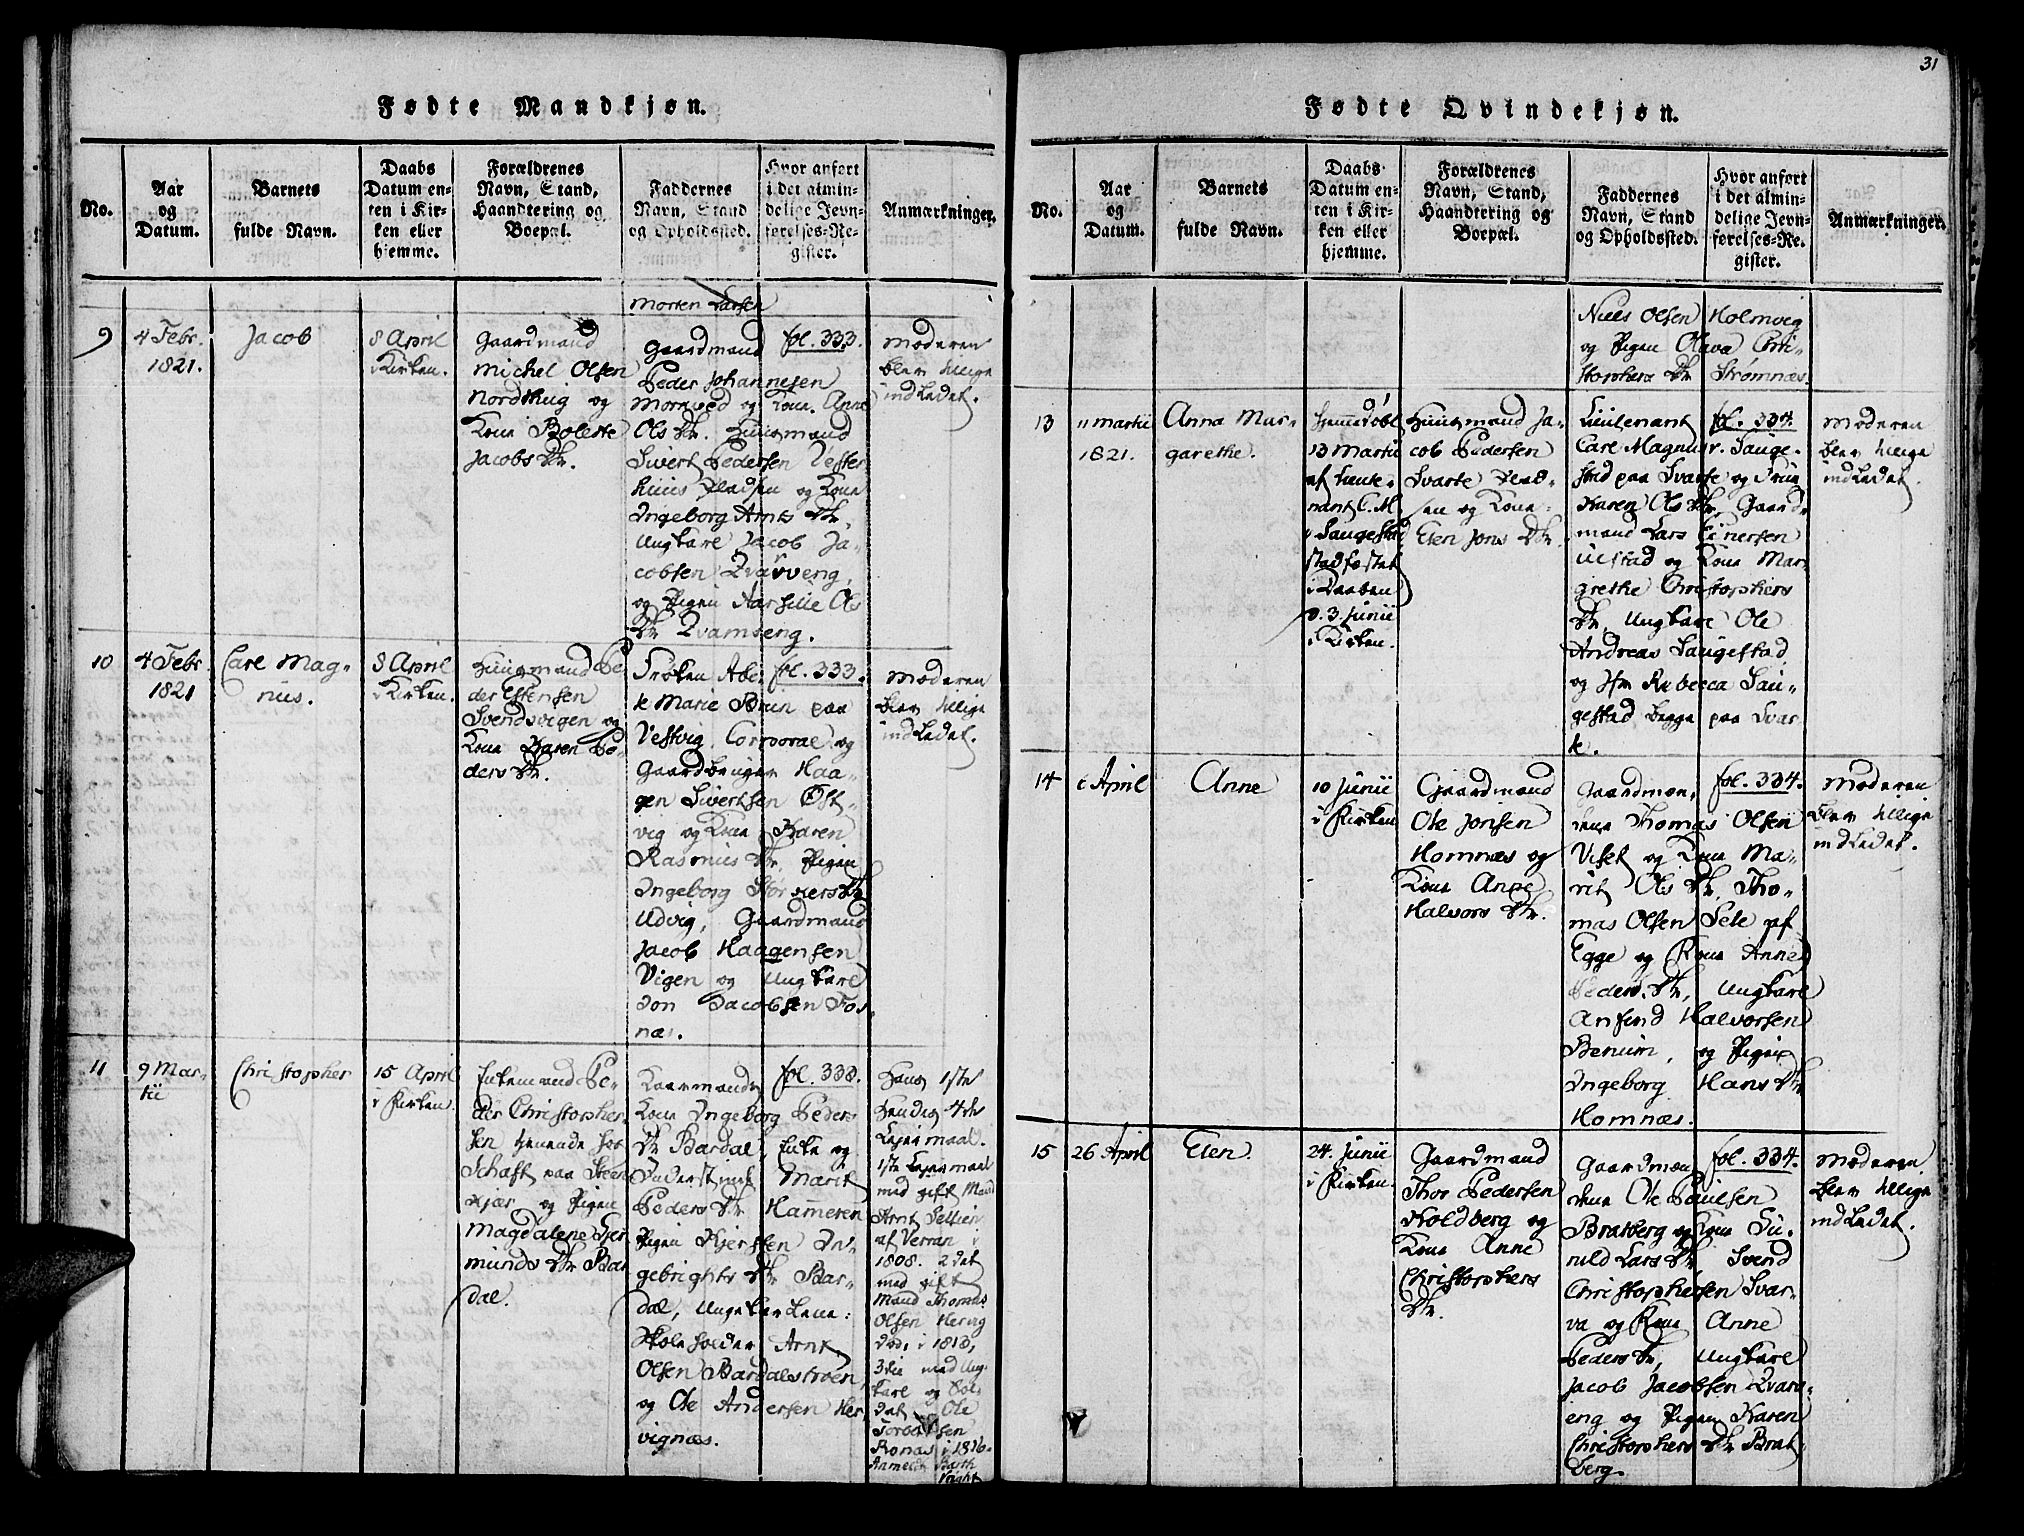 31
Fødte Mandkjøn.
No.
Aar
og
Datum.
Barnets
fulde Navn.
Daabs
Datum en-
ten i Kir-
ken eller
hjemme.
Forældrenes
Navn, Stand,
Haandtering og
Boepæl.
Faddernes
Navn, Stand
og Opholdssted.
Hvor anført
i det almin-
delige Jevn-
førelses-Re-
gister.
Anmærkninger.
Morten Larsen
9
4 Febr.
1821.
Jacob
8 April
i Kirken.
Gaardmand
Michel Olsen
Nordhug og
Kone Bolette
Jacobs Dtr.
Gaardmand
Peder Johannesen
og Kone Anne
Ols Dtr. Huusmand
Sivert Pedersen Vester
huus Pladsen og Kone
Ingeborg Arnts Dtr.
Ungkarl Jacob Ja-
cobsen Qvamseng,
og Pigen Ols
Dtr Qvamseng.
fol. 333.
Moderen
blev tillige
indledet.
10
4 Febr
1821
Carl Mag-
nus.
8 April
i Kirken.
Huusmand Pe-
der Estensen
Svendsvigen og
Kone Karen Pe-
ders Dtr.
Frøken Abel-
le Marie Brun paa
Vestvig. Corporal og
Gaardbruger Haa-
gen Sivertsen Øst-
vig og Kone Karen
Rasmus Dtr. Pigen
Ingeborg Dtr
Udvig, Gaardmand
Jacob Haagensen
Vigen og Ungkarl
Jon Jacobsen Fos-
næs.
fol. 333.
Moderen
blev tillige
indledet.
11
9 Mar-
tii
Christopher
15 April
i Kirken.
Enkemand Pe-
der Christopher-
sen tienende hos
paa Steen
kjær og Pigen
Magdalene
munds Dtr Bar
dal.
Kaarmands
Kone Ingeborg Peders
Dtr Bardal, Enke og
Marit
Peders Dtr Hammeren
Pigen Kjersten In-
gebrigts Dtr Bar-
dal, Ungekarlene:
Skoleholder Arnt
Olsen Bardalsmoen,
og Ole Andersen Her-
vignæs.
fol. 338.
Hans 1ste
hendes 4de
Leiermaal.
1ste Leiermaal
med gift Mand
Arnt
af Verran i
1808. 2det
med gift
Mand Thomas
Olsen Hervig
i 1813,
3die med Ung-
karl og Sol-
dat Ole
Ronæs i 1816.
Fødte Qvindekjøn.
No.
Aar
og
Datum.
Barnets
fulde Navn.
Daabs-
Datum en-
ten i Kir-
ken eller
hjemme.
Forældrenes
Navn, Stand,
Haandtering og
Boepæl.
Faddernes
Navn, Stand
og Opholdssted.
Hvor anført
i det almin-
delige Jevn-
førelses-Re-
gister.
Anmærkninger.
Niels Olsen Holmvig
og Pigen Olava Chri-
stophers Dtr Strømnæs.
13
11 Martii
1821.
Anna Mar-
garethe.
Hjemmedøbt
13 Martii
af Lieute-
nant C. M.
Saugestad
stadfæstet
i Daaben
d. 3 Junii
i Kirken.
Huusmand Ja-
cob Pedersen
Svarte Plad-
sen og Kone
Elen Jons Dtr.
Lieutenant
Carl Magnus v. Sauge-
stad paa Svarte og Frue
Karen Ols Dtr. Gaard-
mand Lars Einersen
Ulstad og Kone Mar
grethe Christophers
Dtr. Ungkarl Ole
Andreas Saugestad
og Jfr Rebecca Sau-
gestad begge paa Svar
te.
fol. 334.
Moderen
blev tillige
indledet.
14
6 April
Anne
10 Junii
i Kirken
Gaardmand
Ole Jonsen
Homnæs og
Kone Anne
Halvors Dtr.
Gaardmæn-
dene Thomas Olsen
Viset og Kone Ma-
rit Ols Dtr, Tho-
mas Olsen Sele af
Egge og Kone Anne
Peders Dtr, Ungkarl
Anfind Halvorsen
Benum, og Pigen
Ingeborg Hans Dtr
Homnæs.
fol. 334.
Moderen
blev tillige
indledet.
15
26 April
Elen.
24 Junii
i Kirken.
Gaardmand
Thor Pedersen
Holdberg og
Kone Anne
Christophers
Dtr.
Gaardmæn-
dene Ole Paulsen
Bratberg og Kone Gu-
nild Lars Dtr Svend
Christophersen Svar-
va og Kone Anne
Peders Dtr, Ungkarl
Jacob Jacobsen Qvam-
eng og Pigen Karen
Christophers Dtr Brat-
berg.
fol. 334.
Moderen
blev tillige
indledet.